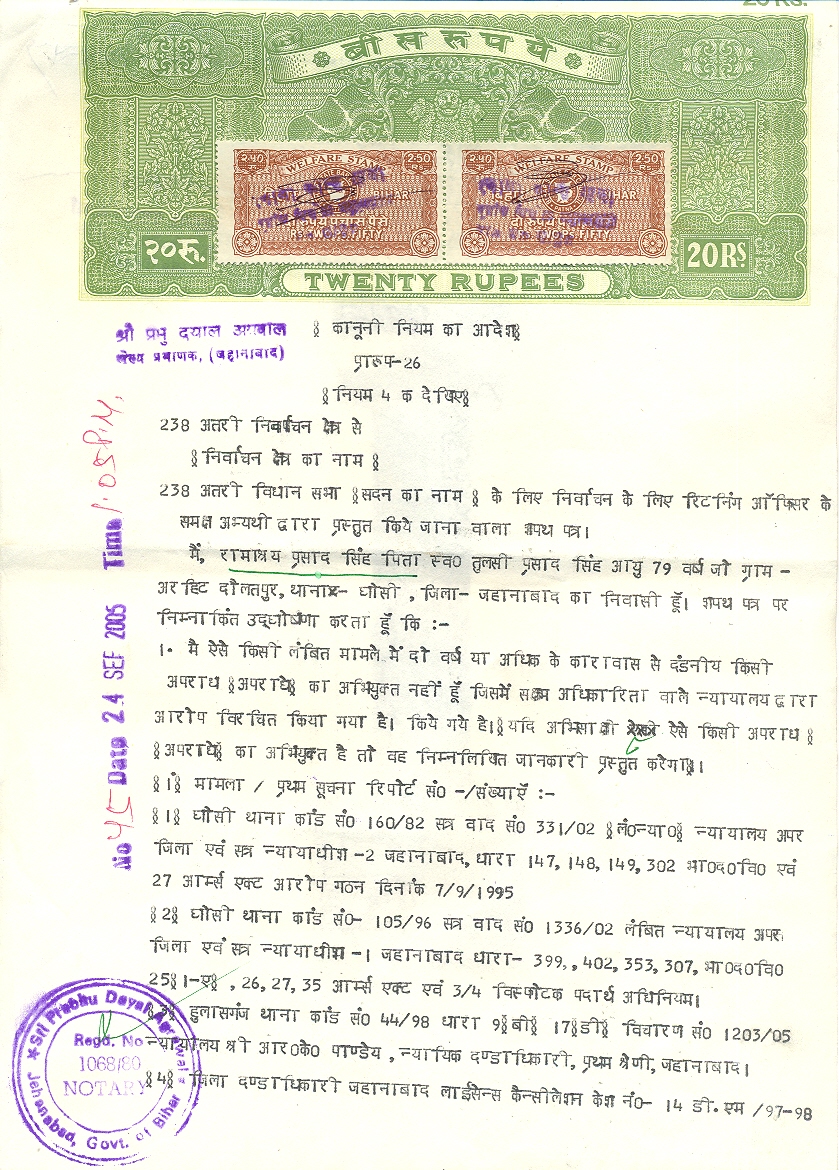 20 Rs.
बीस रुपये
२.५० WELFARE STAMP 2.50
BIHAR
दो रुपये पचास पैसे
RS. TWO PS. FIFTY
२.५० WELFARE STAMP 2.50
BIHAR
दो रुपये पचास पैसे
RS. TWO PS. FIFTY
२०रू.
20RS
TWENTY RUPEES
श्री प्रभु दयाल अग्रवाल
लेख्य प्रमाणक, (जहानाबाद)
§ कानूनी नियम का आदेश§
प्रारूप-26
§नियम 4 क देखिए§
238 अतरी निर्वाचन क्षेत्र से
§निर्वाचन क्षेत्र का नाम §
238 अतरी विधान सभा §सदन का नाम § के लिए निर्वाचन के लिए रिटर्निंग ऑफिसर के
समक्ष अभ्यर्थी द्वारा प्रस्तुत किये जाना वाला शपथ पत्र।
मैं, रामाश्रय प्रसाद सिंह पिता स्व० तुलसी प्रसाद सिंह आयु 79 वर्ष जो ग्राम -
अरहिट दौलतपुर, थाना- घोसी , जिला- जहानाबाद का निवासी हूँ। शपथ पत्र पर
निम्नांकित उद्घोषणा करता हूँ कि :-
1. मै ऐसे किसी लंबित मामले में दो वर्ष या अधिक के कारावास से दंडनीय किसी
अपराध §अपराधों§ का अभियुक्त नहीं हूँ जिसमें सक्षम अधिकारिता वाले न्यायालय द्वारा
आरोप विरचित किया गया है। किये गये है।§यदि अभिसाक्षी ऐसे किसी अपराध §
§अपराधों§ का अभियुक्त है तो वह निम्नलिखित जानकारी प्रस्तुत करेगा§।
§1§ मामला / प्रथम सूचना रिपोर्ट सं० -/संख्याएँ :-
§1§ घोसी थाना कांड सं० 160/82 सत्र वाद सं० 331/02 §लं०न्या०§ न्यायालय अपर
जिला एवं सत्र न्यायाधीश -2 जहानाबाद, धारा 147, 148, 149, 302 भा०द०वि० एवं
27 आर्म्स एक्ट आरोप गठन दिनांक 7/9/1995
§2§ घोसी थाना कांड सं०- 105/96 सत्र वाद सं० 1336/02 लंबित न्यायालय अपर
जिला एवं सत्र न्यायाधीश -1 जहानाबाद धारा- 399,,402, 353, 307, भा०द०वि०
25§1-ए§ , 26, 27, 35 आर्म्स एक्ट एवं 3/4 विस्फोटक पदार्थ अधिनियम।
§3§ हुलासगंज थाना कांड सं० 44/98 धारा 9§बी§ 17§डी§ विचारण सं० 1203/05
न्यायालय श्री आर०के० पाण्डेय , न्यायिक दण्डाधिकारी, प्रथम श्रेणी, जहानाबाद।
§4§ जिला दण्डाधिकारी जहानाबाद लाईसेन्स कैन्सीलेशन केश नं०- 14 डी.एम /97-98
No 45 Date 24 SEP 2005 Time 1.05 P.M.
Sri Prabhu Dayal Agrawal
Regd. No
1068/80
NOTARY
Jehanabad, Govt. of Bihar